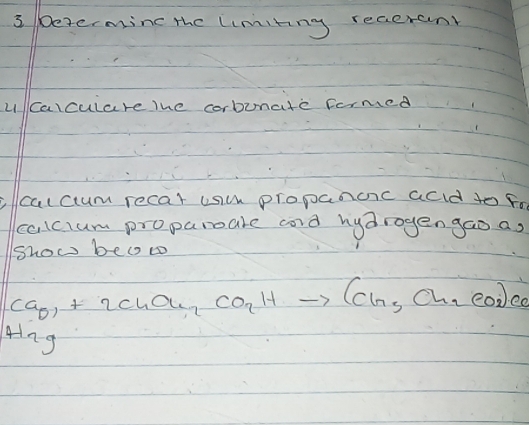 3 Determine the Limiting reactant
4 Calculate the carbonate formed
calcium recat with propanoic acid to
calcium propanoate and hydrogen gas as
show below
+ 2 CO2H →
H2g